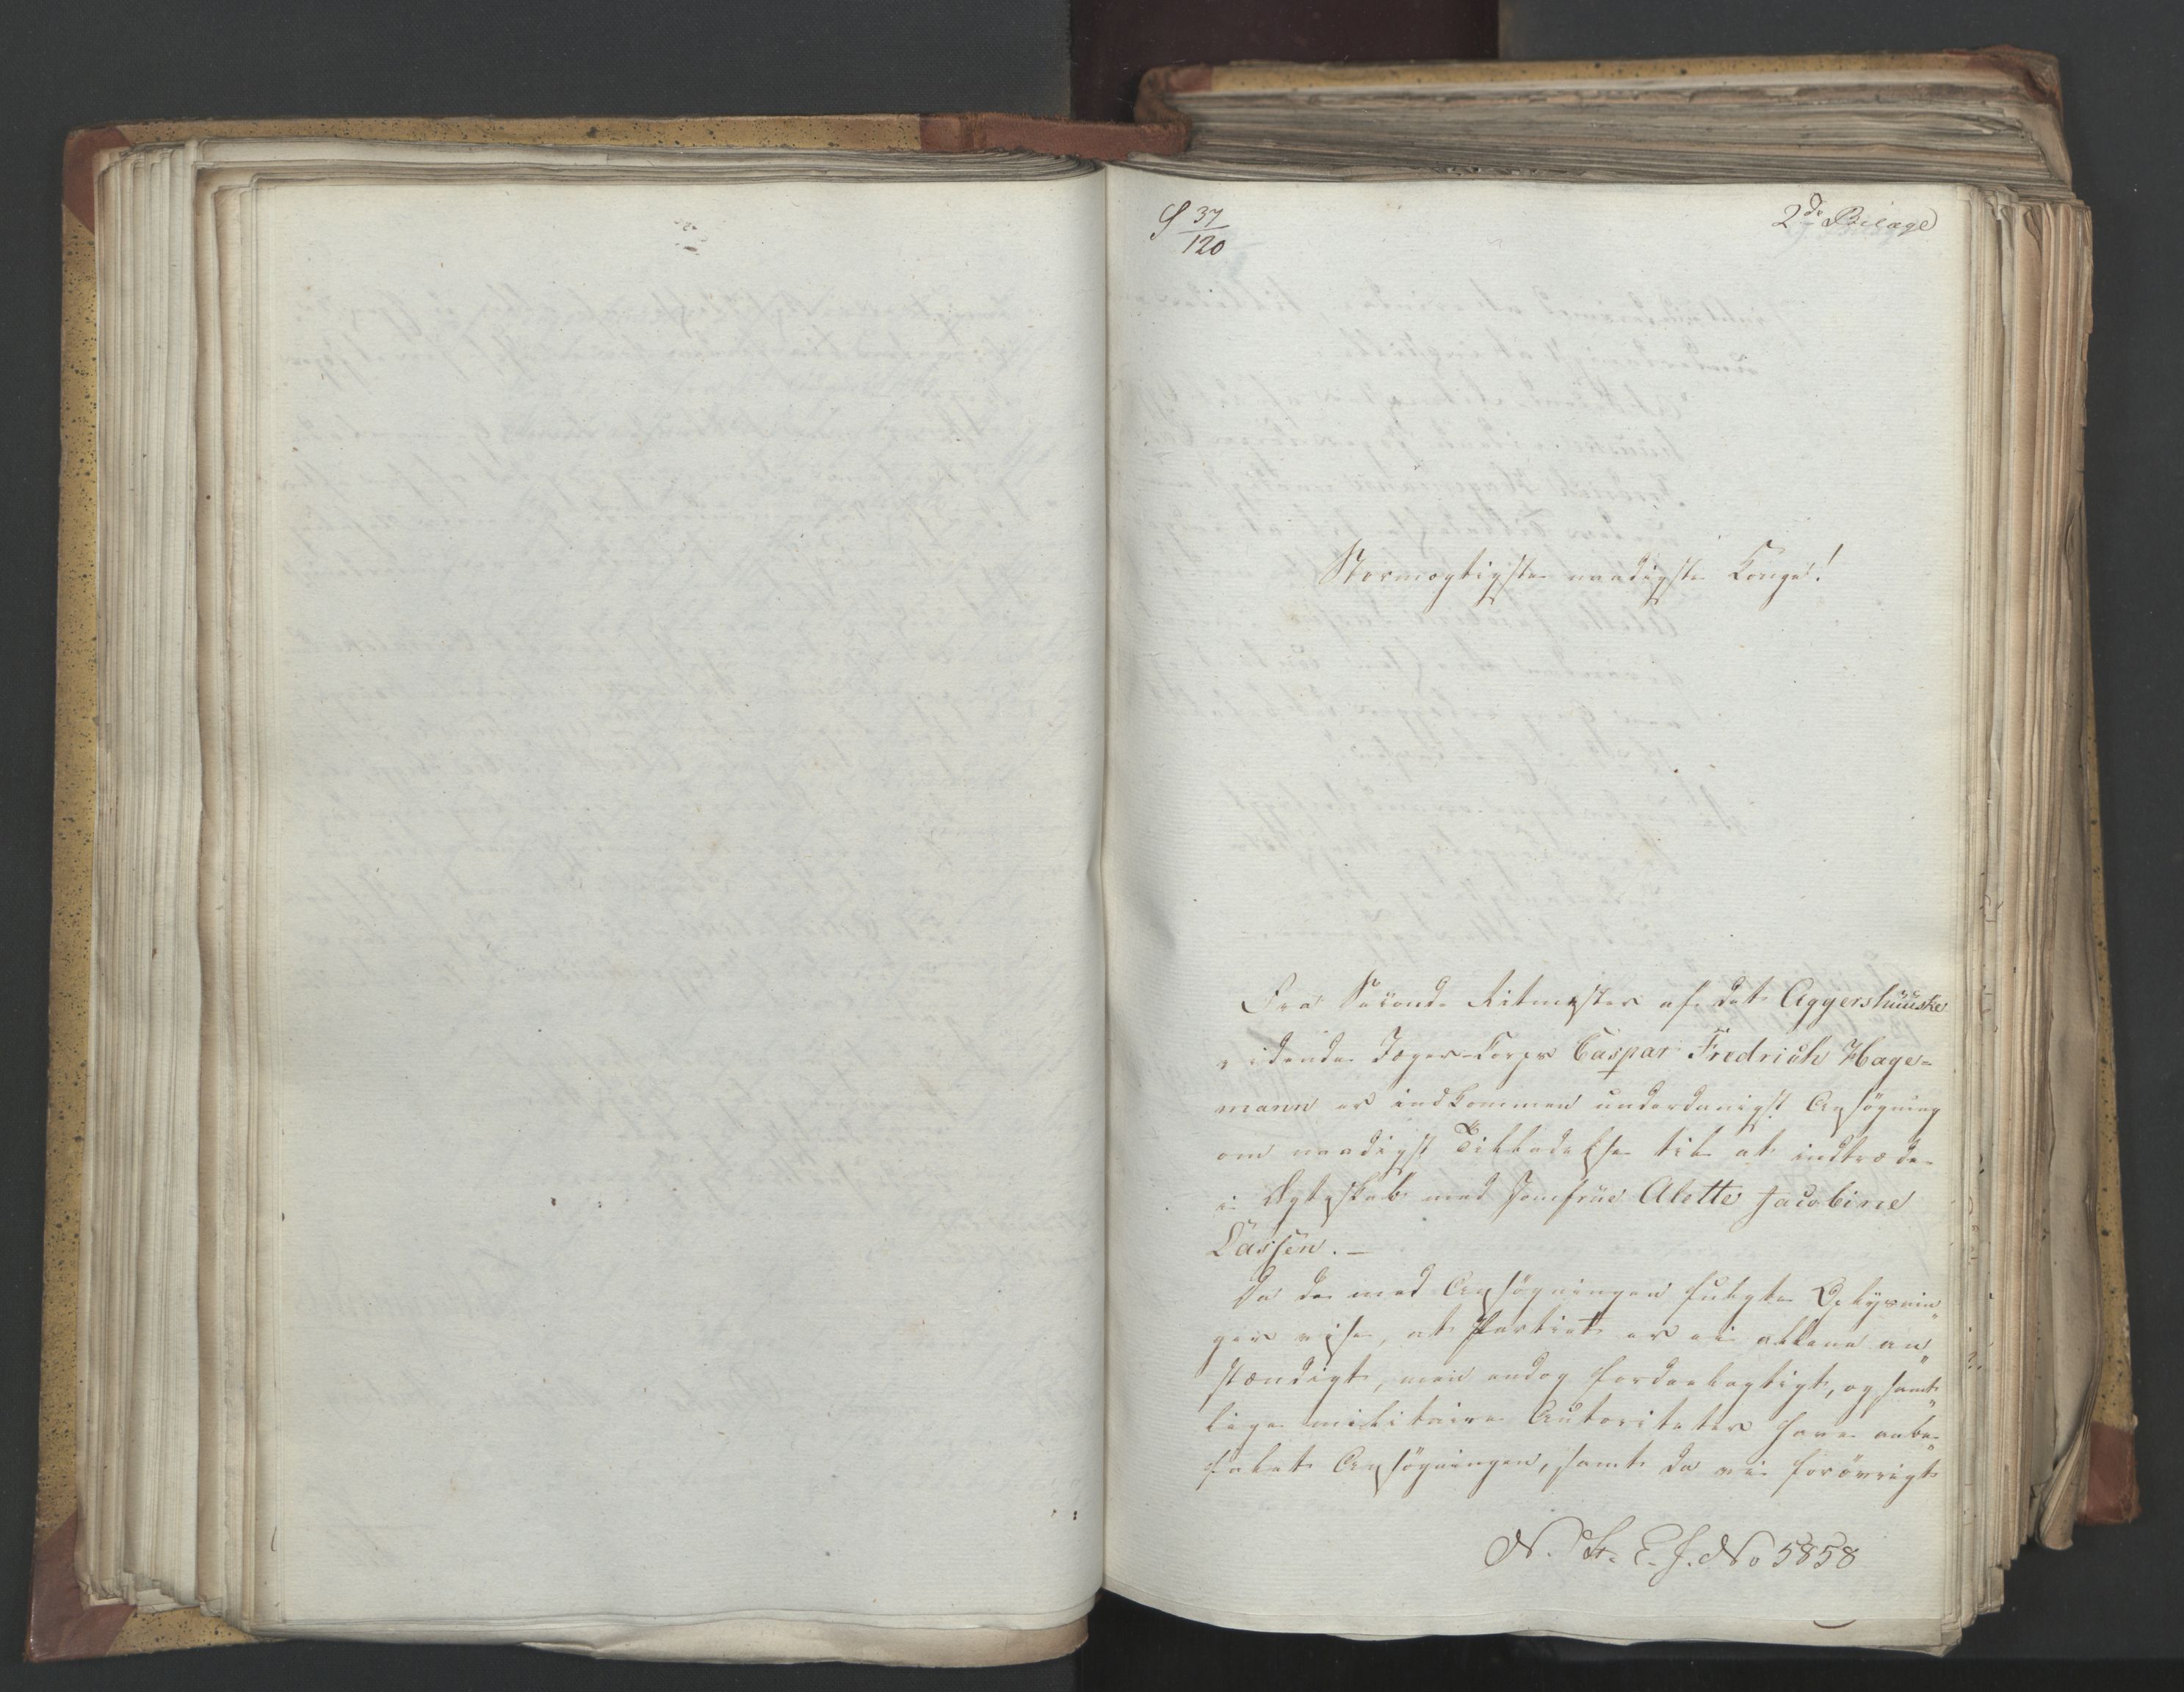 S 37/120
2de Bilage
Stormægtigste naadigste Konge!
Fra Second Ritmester af det Aggershuuske
ridende Jæger-Corps Caspar Fredrich Hage=
mann er indkommen underdanigst Ansøgning
om naadigst Tilladelse til at indtræde
i Ægteskab med Jomfrue Alette Jacobine
Lassen. —
Da de med Ansøgningen fulgte Oplysnin„
ger vise, at Partiet er ei allene an„
stændigt, men endog fordeelagtigt, og samt„
lige militaire Autoriteter have anbe„
falet Ansøgningen, samt da vi forøvrigt
N. St. E. J. No 5858